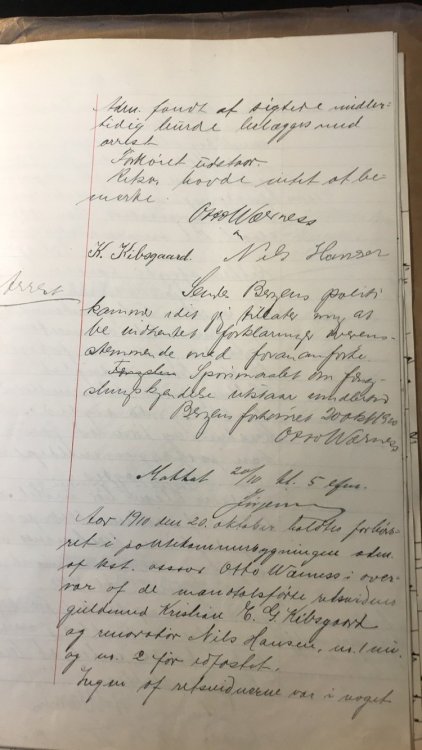 Adm. fandt at sigtede midler=
tidig burde belægges med
arrest
Forhøret udstaar.
Retsv. havde intet at be=
merke.
Otto Wærness
K. Kibsgaard. Nils Hansen
Arrest
Sendes Bergens politi
kammer idet jeg tillater mig at
be indhentet forklaringer overens=
stemmende med foran anførte.
Spørsmaalet om fæng=
slingskjendelse utstaar imidlertid
Bergens forhørsret 20 oktbr 1910
Otto Wærness
Mottat 20/10 kl. 5 efm.
Aar 1910 den 20. oktober holdtes forhørs=
ret i politikammerbygningen adm.
af kst. assessor Otto Wærness i over=
vær af de mandtalsførte retsvidner
guldsmed Kristian E. G. Kibsgaard
og renovatør Nils Hansen, no. 1 ny.
og no. 2 før edfæstet.
Ingen af retsvidnerne var i noget